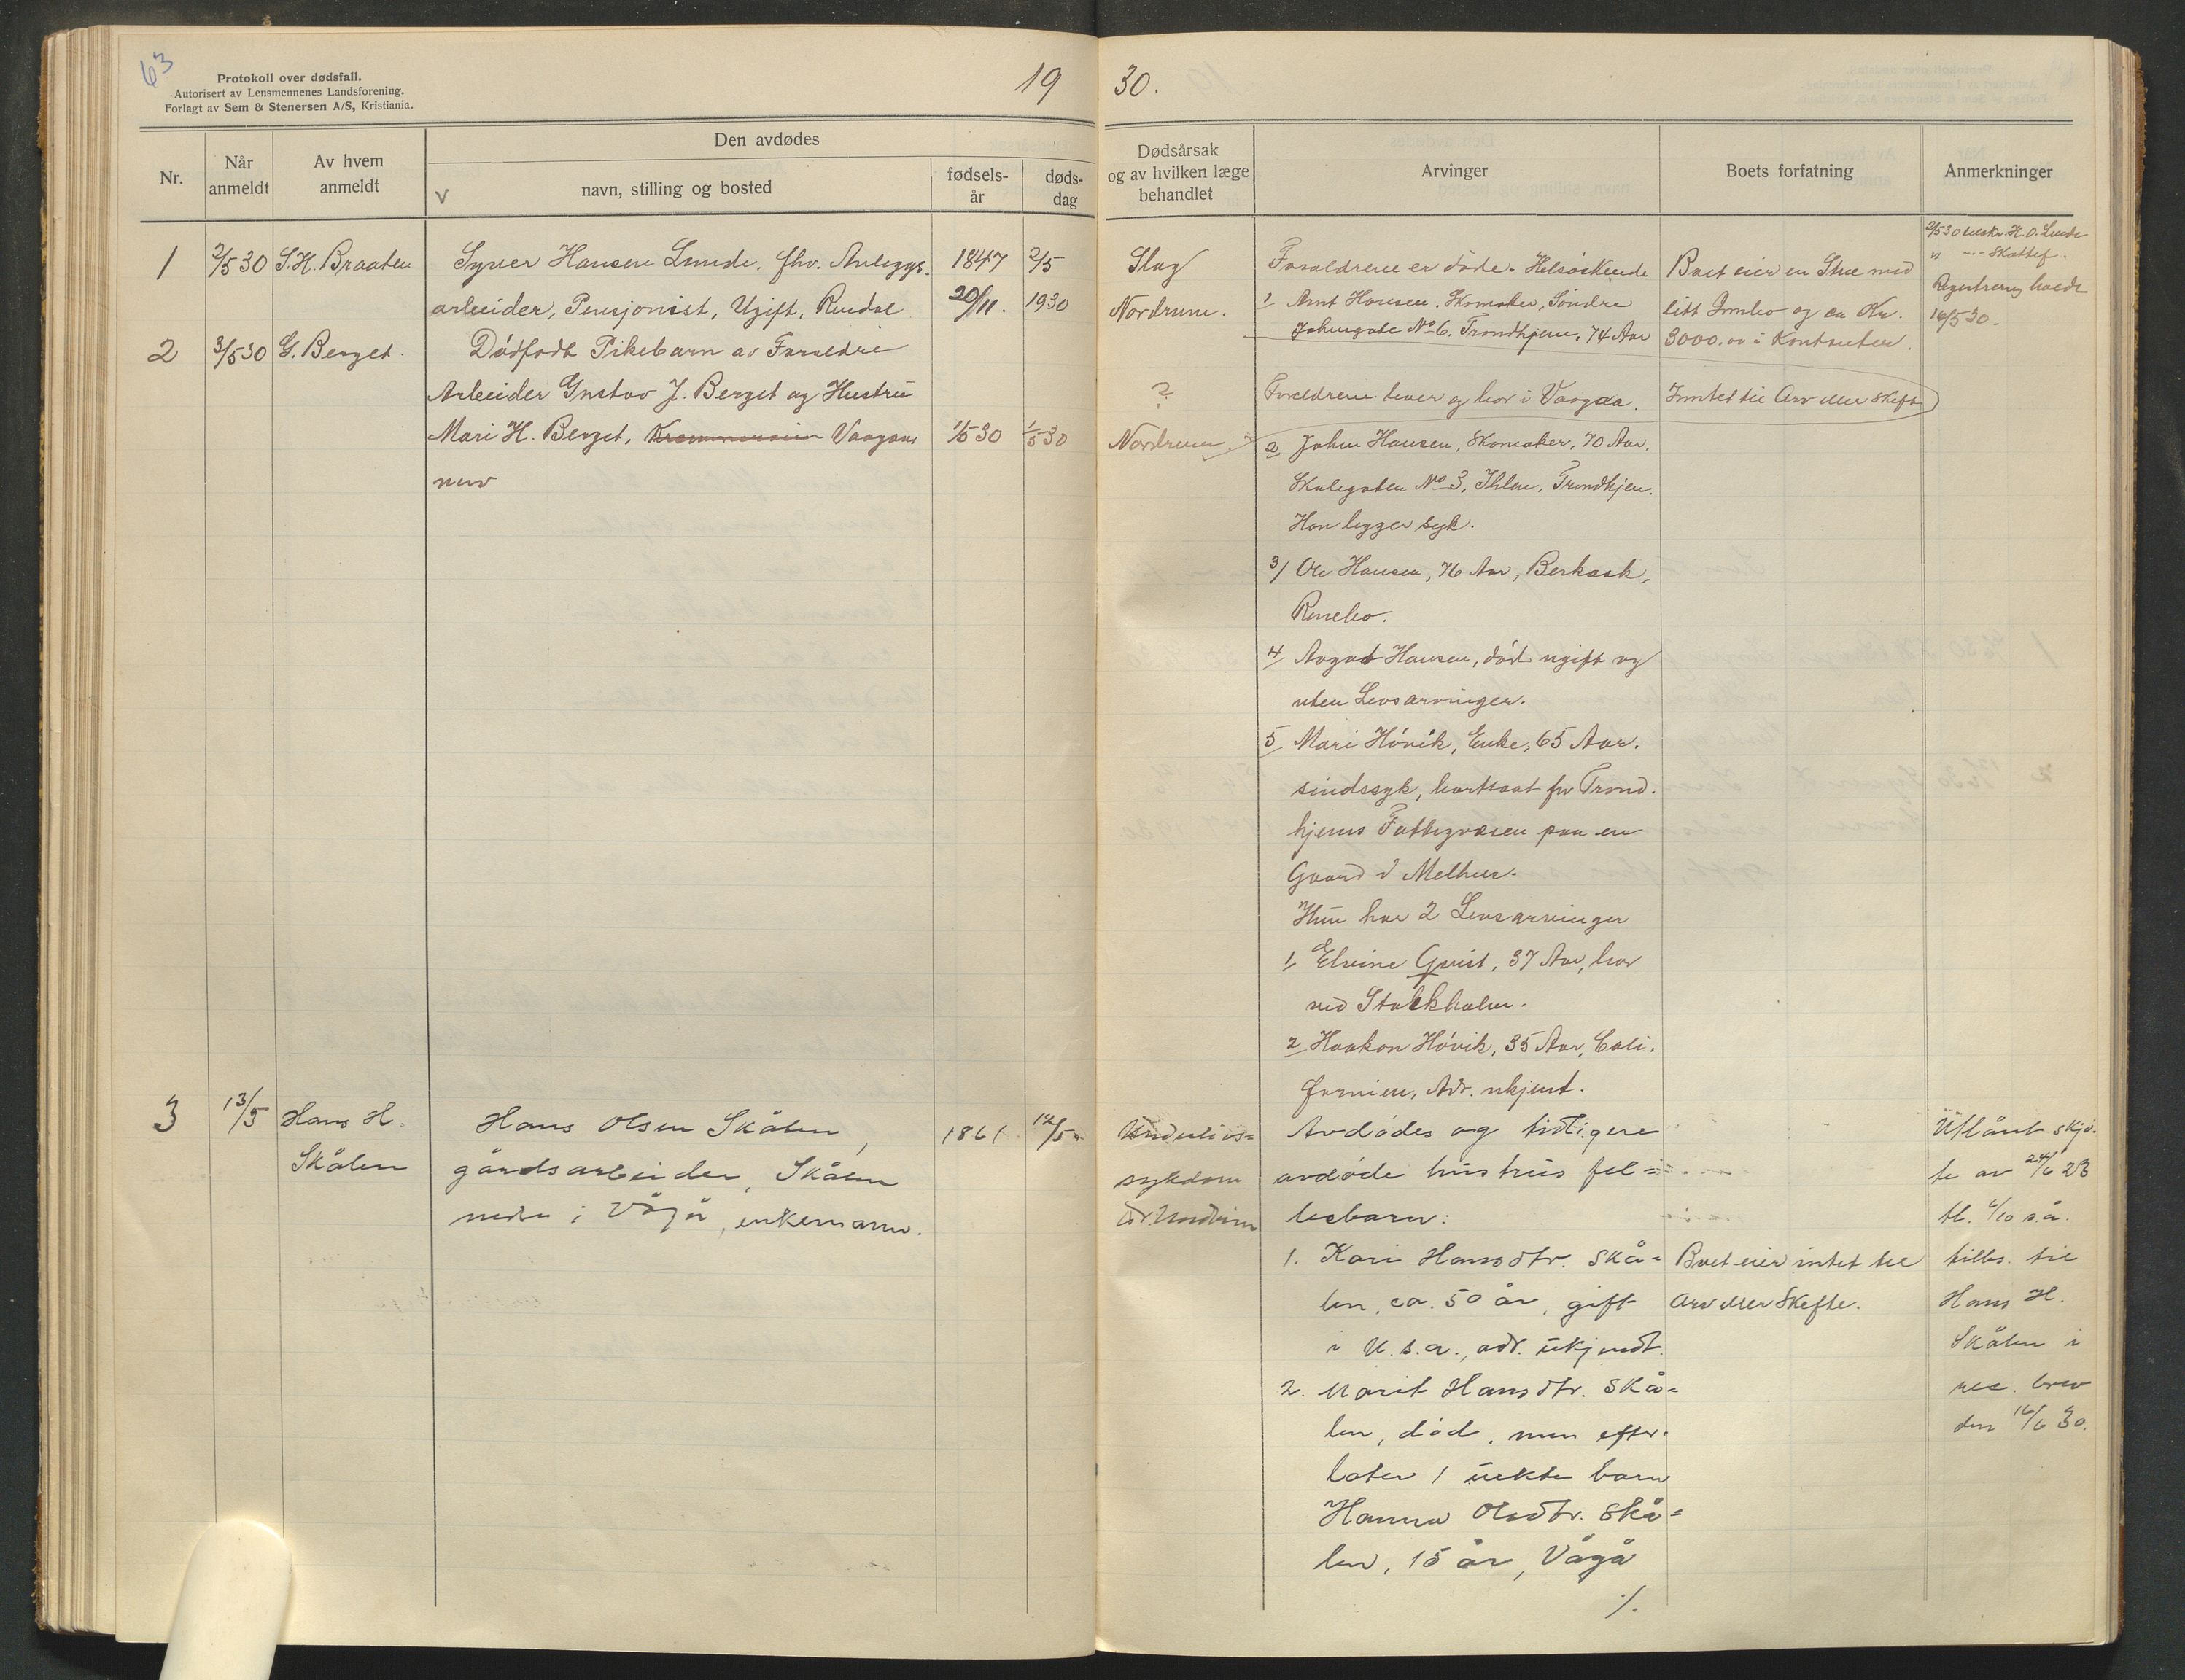 63
Protokoll over dødsfall.
Autorisert av Lensmennenes Landsforening.
Forlagt av Sem & Stenersen A/S, Kristiania.
19 30.
Nr.
Når anmeldt
Av hvem anmeldt
Den avdødes
navn, stilling og bosted
fødsels-år
døds-dag
Dødsårsak
og av hvilken læge
behandlet
Arvinger
Boets forfatning
Anmerkninger
V
1
2/5 30
S. H. Braaten
Syver Hansen Lunde, fhv. Anleggs-
arbeider, Pensjonist, Ugift,
1847
20/11.
2/5
1930
Slag
Nordrum.
Foreldrene er døde. Helsøskende
1 Arnt Hansen. Skomaker, Søndre
Johnsgate No 6. Trondhjem, 74 Aar
Boet eier en Stue med
litt Innbo og ca Kr.
3000.00 i Kontanter.
2/5 30 H. O. Lunde
" - - - Skattef.
Registrering holdt
16/5 30.
2
3/5 30
G. Berget.
Dødfødt Pikebarn av Foreldre
Arbeider Gustav J. Berget og Hustru
Mari H. Berget, Vaagaa
1/5 30
1/5 30
?
Nordrum.
Foreldrene lever og bor i Vaagaa.
Inntet til Arv eller Skifte
2 Johan Hansen, Skomaker, 70 Aar,
Skolegaten No 3, Ihlen, Trondhjem.
Han ligger syk.
3/ Ole Hansen, 76 Aar, Berkaak,
Rennebo.
4/ August Hansen, død ugift og
uten Livsarvinger.
5/ Mari Høvik, Enke, 65 Aar.
sindssyk, bortsat for Trond-
hjems Fattigvæsen paa en
Gaard i Melhus.
Hun har 2 Livsarvinger
1/ Elvine Qvist, 37 Aar, bor
ved Stockholm.
2 Haakon Høvik, 35 Aar, Cali-
fornien, Adr. ukjent.
3
13/5
Hans H.
Skålen
Hans Olsen Skålen,
gårdsarbeider, Skålen
nedre i Vågå, enkemann.
1861
12/5
sykdom
Avdødes og tidligere
avdøde hustrus fel=
lesbarn:
1. Kari Hansdtr. Skå=
len, ca. 50 år, gift
i U.S.A., adr. ukjendt.
2. Marit Hansdtr. Skå=
len, død, men efter-
later 1 uekte barn
Hanna Olsdtr. Skå=
len, 15 år, Vågå
./.
Boet eier intet til
Arv eller Skifte.
Utlånt skjø-
te av 24/6 23
tl. 6/10 s.å.
tilbs. til
Hans H.
Skålen i
rec. brev
den 16/6 30.